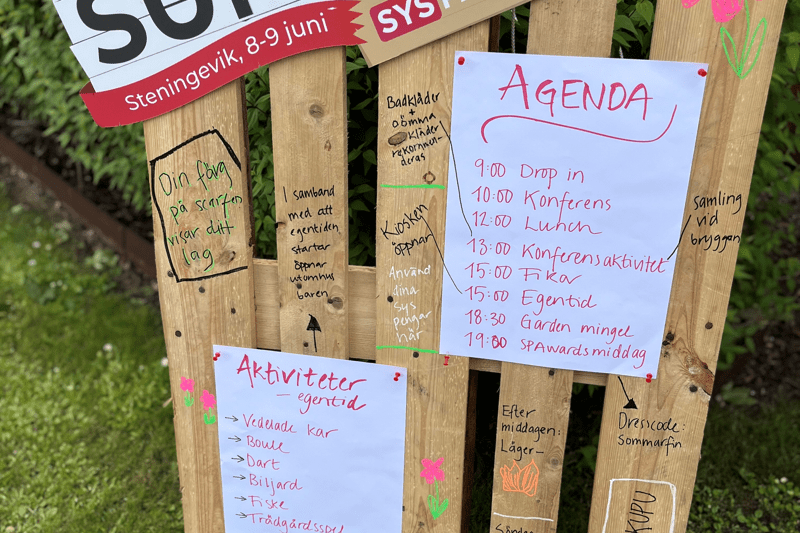 Steningevik, 8-9 juni
AGENDA
9:00 Drop in
10:00 Konferens
12:00 Lunch
13:00 Konferensaktivitet
15:00 Fika
15:00 Egentid
18:30 Garden mingel
19:00 SPAwardsmiddag
Badkläder
+
oömma
kläder
rekommen-
deras
Kiosken
öppnar
Använd
dina
sys
pengar
här
samling
vid
bryggan
Din färg
på scarfen
visar ditt
lag
I samband
med att
egentiden
startar
öppnar
utomhus
baren
Aktiviteter
- egentid
→ Vedeldade kar
→ Boule
→ Dart
→ Biljard
→ Fiske
→ Trädgårdsspel
Efter
middagen:
Läger-
Dresscode:
Sommarfin